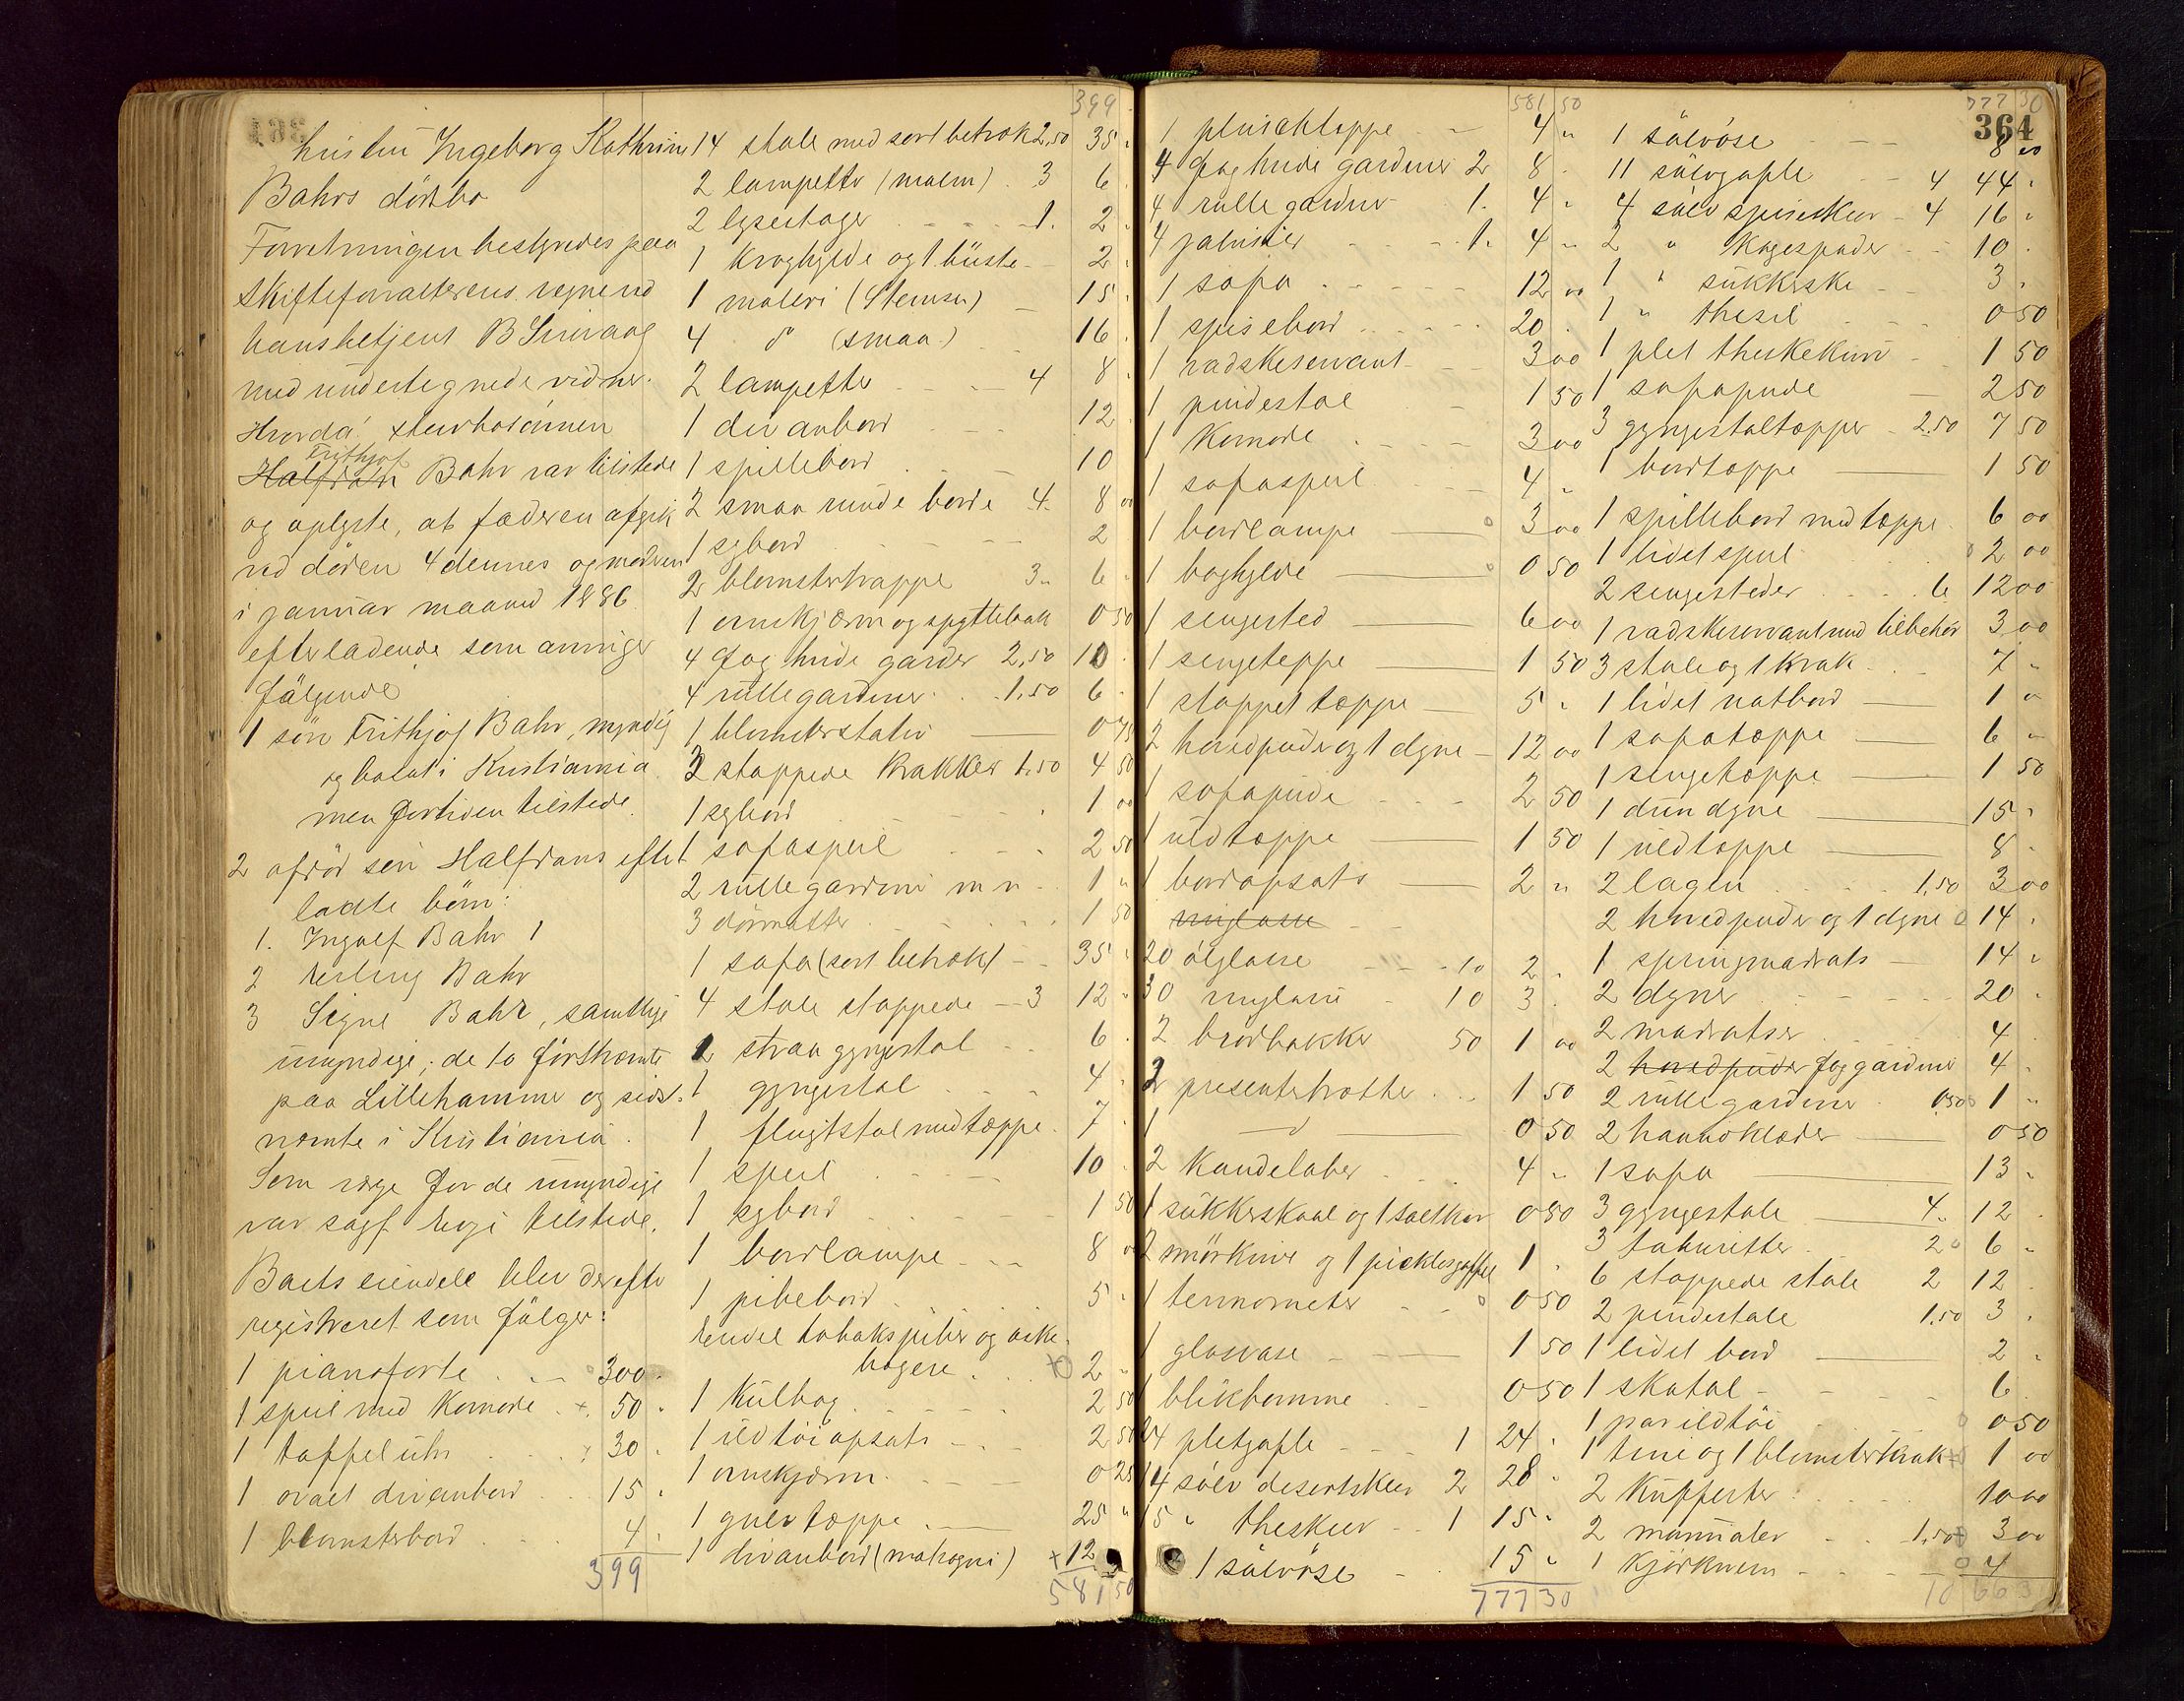 hustru Ingeborg Kathrine
Bahrs dödsbo
Forretningen bestyredes paa
skifteforvalterens vegne ved
hansbetjent B
med undertegnede vidner.
Hvorda! sterbosönnen
Frithjof
Halfdan Bahr var tilstede
og oplyste, at faderen afgik
ved döden 4 dennes og moderen
i januar maaned 1886
efterladende som arvinger
fölgende
1 sön Frithjof Bahr, myndig
og bosat i Kristiania
men for tiden tilstede.
2 afdöd sön Halfdans efter
ladte börn:
1. Ingolf Bahr 1
2 Erling Bahr
3 Signe Bahr, samtlige
umyndige; de to förstnævnte
paa Lillehammer og sidst-
nævnte i Kristiania.
Som verge for de umyndige
var sagf. tilstede.
Boets eiendele blev derefter
registreret som fölger:
1 pianoforte 300 "
1 speil med komode + 50 "
1 taffeluhr 30 "
1 ovalt divanbord 15 "
1 blomsterbord 4 "
399
399
14 stole med sort betræk 2,50 35 "
2 lampetter (malm) 3 6 "
2 lysestager 1. 2 "
1 kroghylde og 1 büste 2 "
1 maleri (Stemsen) 15 "
4 do (smaa) 16 "
2 lampetter 4 8 "
1 divanbord 12 "
1 spillebord 10
2 smaa runde borde 4. 8 00
1 sybord 2
2 blomstertrappe 3 " 6 "
1 ovnskjærm og spyttebak 0 50
4 fag hvide gardiner 2,50 10 "
4 rullegardiner 1.50 6 "
1 blomsterstativ 0 75
3 stoppede krakker 1.50 4 50
1 sybord 1 00
1 sofaspeil 2 50
2 rullegardiner m n 1 "
3 dörmatter 1 50
1 sofa (sort betræk) 35 "
4 stole stoppede 3 12 "
2 straa gyngestol 6 "
1 gyngestol 4 "
1 flugtstol med tæppe 7 "
1 speil 10 "
1 sybord 1 50
1 bordlampe 8 00
1 pibebord 5 "
Endel tobakspiber og aske-
bægere + 2 "
1 kulbox 2 50
1 ildtöiopsats 2 50
1 ovnskjærm 0 25
1 gulvtæppe 25 "
1 divanbord (mahogni) + 12
581 50
581 50
1 plüschtæppe 4 "
4 fag hvide gardiner 2 8 "
4 rullegardiner 1. 4 "
4 jalusier 1. 4 "
1 sofa 12 00
1 spisebord 20 "
1 vadskeservant 3 00
1 pindestol 1 50
1 komode 3 00
1 sofaspeil 4 "
1 bordlampe 3 00
1 boghylde 0 50
1 sengested 6 00
1 sengeteppe 1 50
1 stoppet tæppe 5 "
2 hovedpuder og 1 dyne 12 00
1 sofapude 2 50
1 uldtæppe 1 50
1 bordopsats 2 "
vinglasse
20 ölglasse 10 2 "
30 vinglasse 10 3 "
2 brödbakker 50 1 00
2 presenterbrætter 1 50
1 d 0 50
2 Kandelaber 4 "
1 sukkerskaal og 1 saltkar 0 50
2 smörknive og 1 picklesgaffel 1 "
1 termometer 0 50
1 glasvase 1 50
1 0 50
24 pletgafle 1 24 "
14 sölv desertskeer 2 28 "
15 " theskeer 1 15 "
1 sölvöse 15 "
777 30
777 30
364
1 sölvöse 8 00
11 sölvgafle 4 44 "
4 sölv spiseskeer 4 16 "
2 " Kagespader 10 "
1 " sukkerske 3 "
1 " thesil 0 50
1 plet theskekurv 1 50
1 sofapude 2 50
3 gyngestoltæpper 2.50 7 50
1 bordtæppe 1 50
1 spillebord med tæppe 6 00
1 lidet speil 2 00
2 sengesteder 6 12 00
1 vadskeservant med tilbehör 3 00
3 stole og 1 krak 7 "
1 lidet natbord 1 "
1 sofatæppe 6 "
1 sengetæppe 1 50
1 dundyne 15 "
1 uldtæppe 8 "
2 lagen 1,50 3 00
2 hovedpuder og 1 dyne 14 "
1 springmadrats 14 "
2 dyner 20 "
2 madratser 4
2 hovedpuder fag gardiner 4 "
2 rullegardiner 0,50 1 "
2 haandklæder 0 50
1 sofa 13 "
3 gyngestole 4 " 12 "
3 taburetter 2 6 "
6 stoppede stole 2 12 "
2 pindestole 1.50 3 "
1 lidet bord 2 "
1 skatol 6 "
1 par ildtöi 0 50
1 tine og 1 blomsterkrak 1 00
2 Kufferter 10 00
2 1.50 3 00
1 4
10 66 3